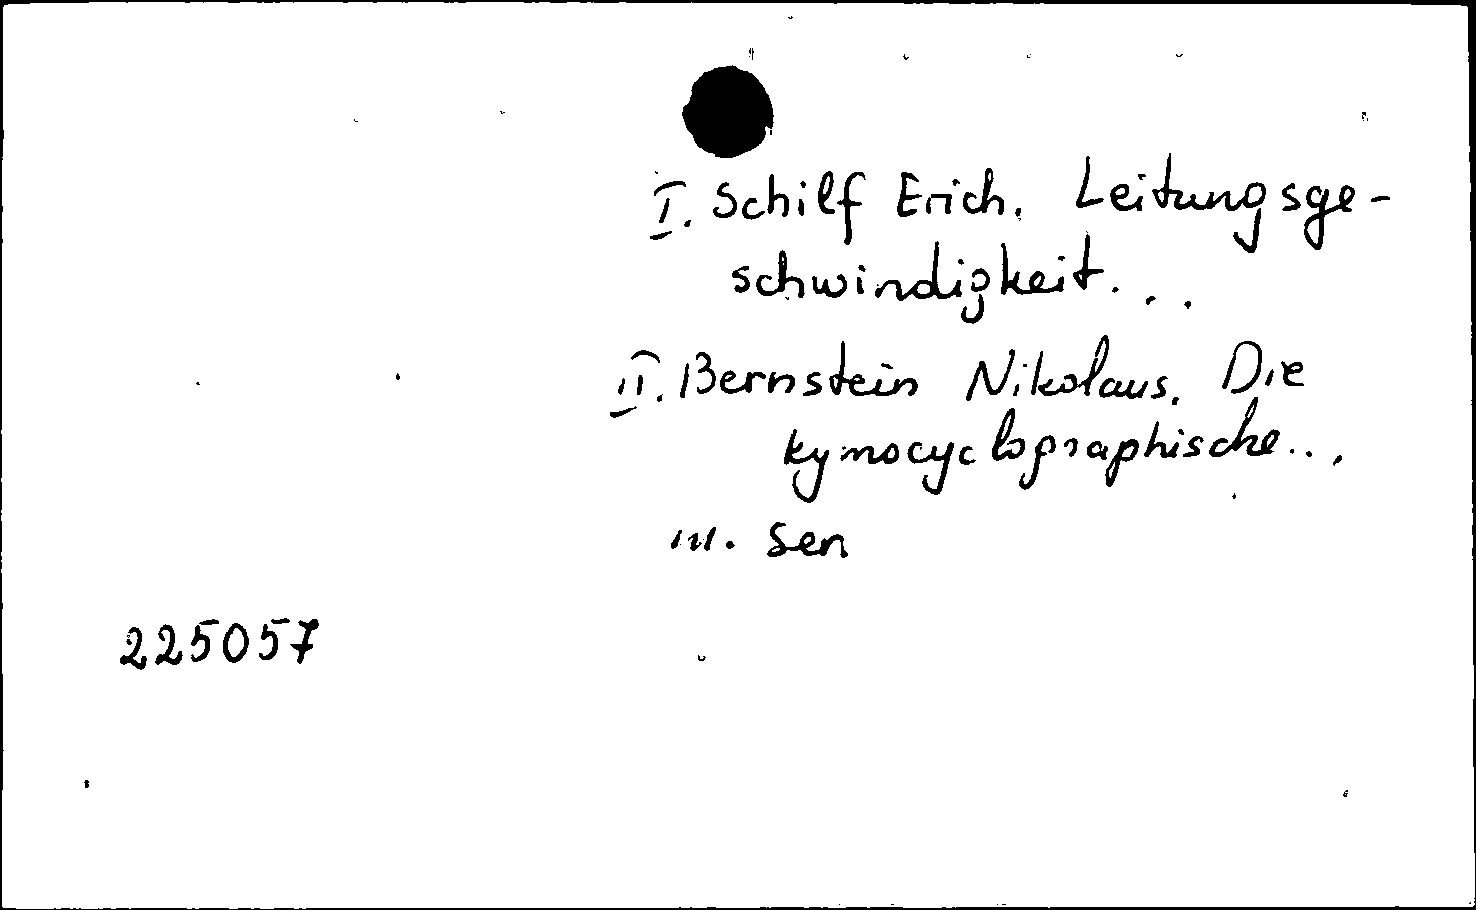 I. Schilf Erich. Leitungsge-
schwindigkeit...
II. Bernstein Nikolaus. Die
kymocyclographische...
III. Sen
225057